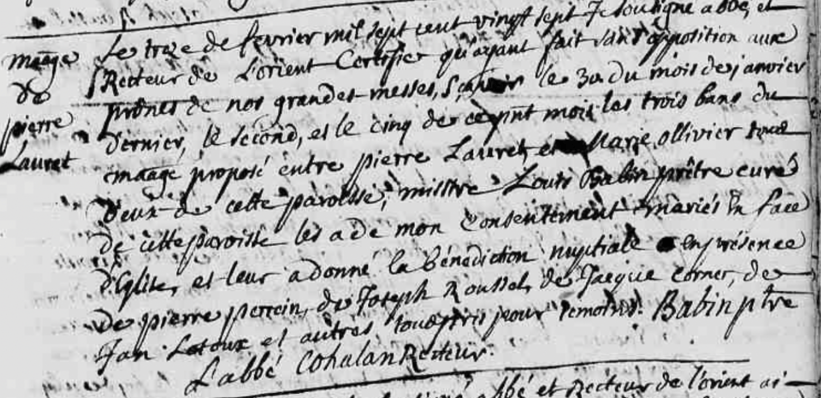 Le treze de fevrier mil sept cent vingt sept Je soubsigné abbé, et
maage
Recteur de Lorient Certifie qu'ayant fait sans opposition aux
de
prônes de nos grandes messes, sçavoir le du mois de janvier
pierre
dernier, le second, et le cinq de ce mois les trois bans du
Lauret
maage proposé entre pierre Lauret, et Marie ollivier tous
deux de cette paroisse, missire Louis Babin prêtre curé
de cette paroisse les a de mon Consentement mariés En face
d'Eglise, et leur a donné la bénédiction nuptiale en présence
de pierre perrein, de Joseph Roussel, de Jacque Corner, de
Jan et autres tous pris pour temoins. Babin ptre
L'abbé Cohalan Recteur.
abbé et Recteur de l'orient ai-